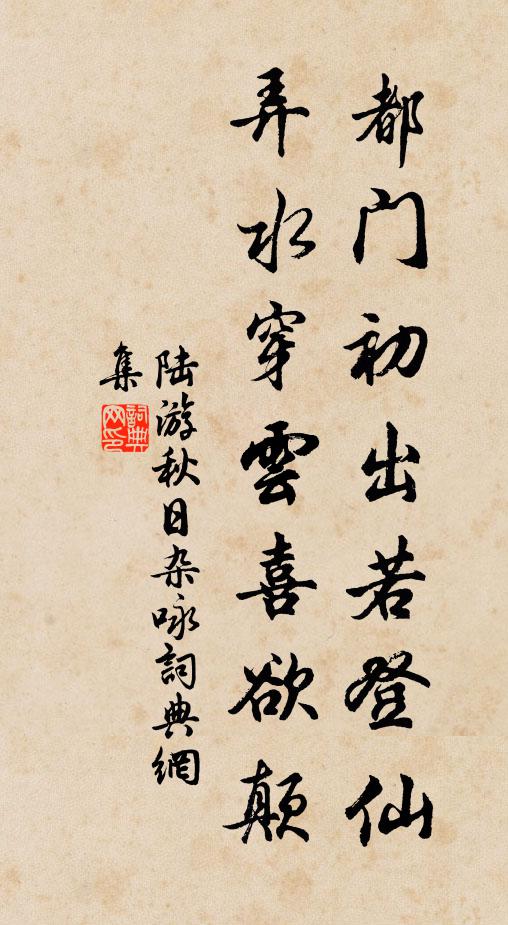 都门初出若登仙
弄水穿雲喜欲颠
陆游秋日杂咏詞典網
集
詞典网印